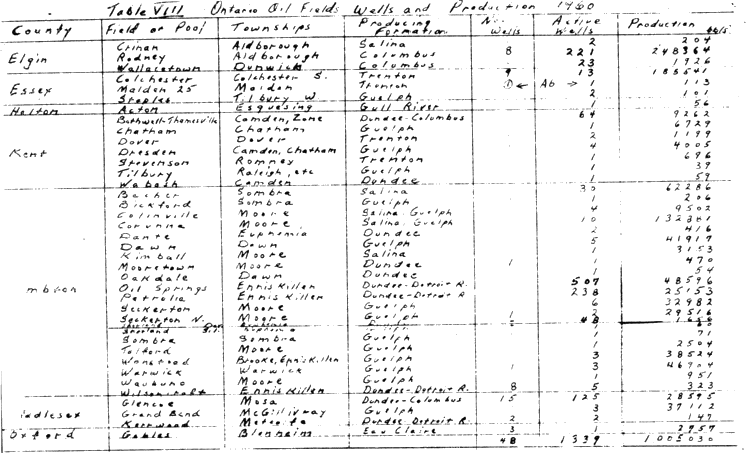 Table VIII Ontario Oil Fields Wells and Production 1960
County Field or Pool Townships Producing Formation No. Wells Active Wells Production bbls
Crinan Aldborough Salina 2 204
Elgin Rodney Aldborough Columbus 8 221 248364
Wallacetown Dunwich Columbus 23 1926
Colchester Colchester S. Trenton 9 13 185541
Essex Malden 25 Malden Trenton ① ← Ab → 1 113
Staples Tilbury W Guelph 2 101
Halton Acton Esquesing Gull River 1 56
Bothwell-Thamesville Camden, Zone Dundee-Columbus 64 9262
Chatham Chatham Guelph 1 6729
Dover Dover Trenton 2 1199
Kent Dresden Camden, Chatham Guelph 4 4005
Stevenson Romney Trenton 1 696
Tilbury Raleigh, etc Guelph 1 39
Wabash Camden Dundee 1 59
Becher Sombra Salina 30 62286
Bickford Sombra Guelph 1 206
Colinville Moore Salina, Guelph 4 9502
Corunna Moore Salina, Guelph 10 132381
Dante Euphemia Dundee 2 416
Dawn Dawn Guelph 5 41917
Kimball Moore Salina 1 3153
Mooretown Moore Dundee 1 1 470
Oakdale Dawn Dundee 1 54
mbton Oil Springs Enniskillen Dundee-Detroit R. 507 48596
Petrolia Enniskillen Dundee-Detroit R 238 25153
Seckerton Moore Guelph 6 32982
Seckerton N. Moore Guelph 1 2 29516
Shetland
48
Sombra Sombra Guelph 1 2504
Telford Moore Guelph 3 38524
Wanstead Brooke, Enniskillen Guelph
Warwick Warwick Guelph 1 3 46704
Waubuno Moore Guelph 1 951
Wilsoncroft Enniskillen Dundee-Detroit R. 8 5 323
Glencoe Mosa Dundee-Columbus 15 125 28595
iddlesex Grand Bend McGillivray Guelph 3 37112
Kerrwood Metcalfe Dundee Detroit R. 2 2 147
Oxford Gobles Blenheim Eau Claire 3 1 2957
48 1339 1005030